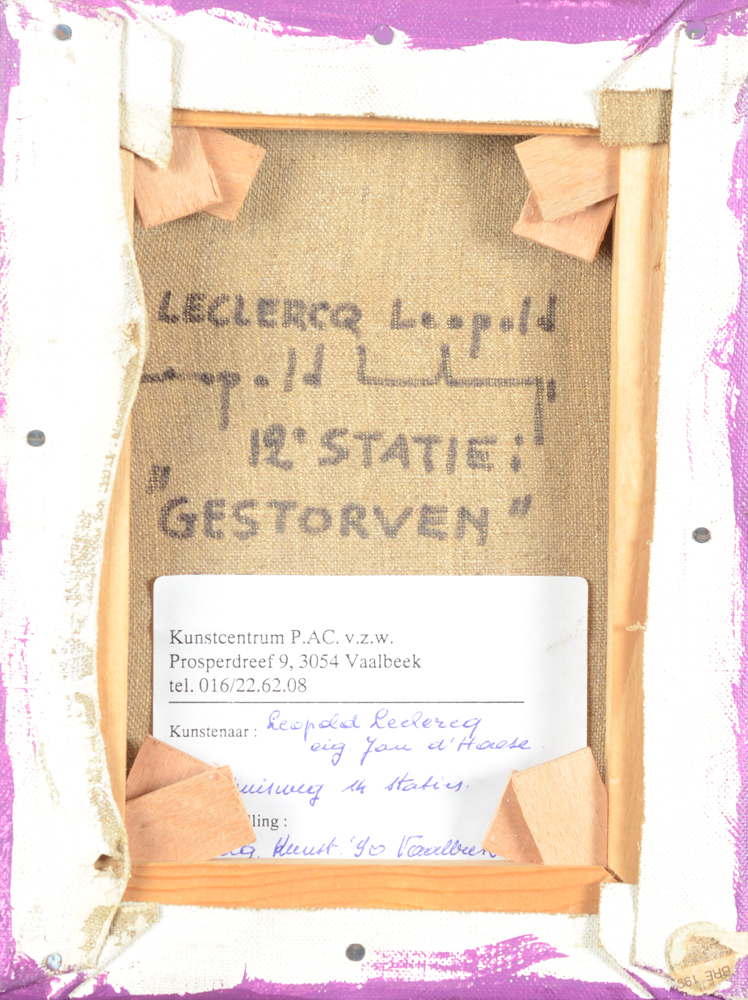 LECLERCQ Leopold
12° STATIE:
„GESTORVEN"
Kunstcentrum P.AC. v.z.w.
Prosperdreef 9, 3054 Vaalbeek
tel. 016/22.62.08
Kunstenaar : Leopold Leclercq
eig. Jan d'Haese
staties.
lling :
Kunst '90 Vaalbeek
BRE 199